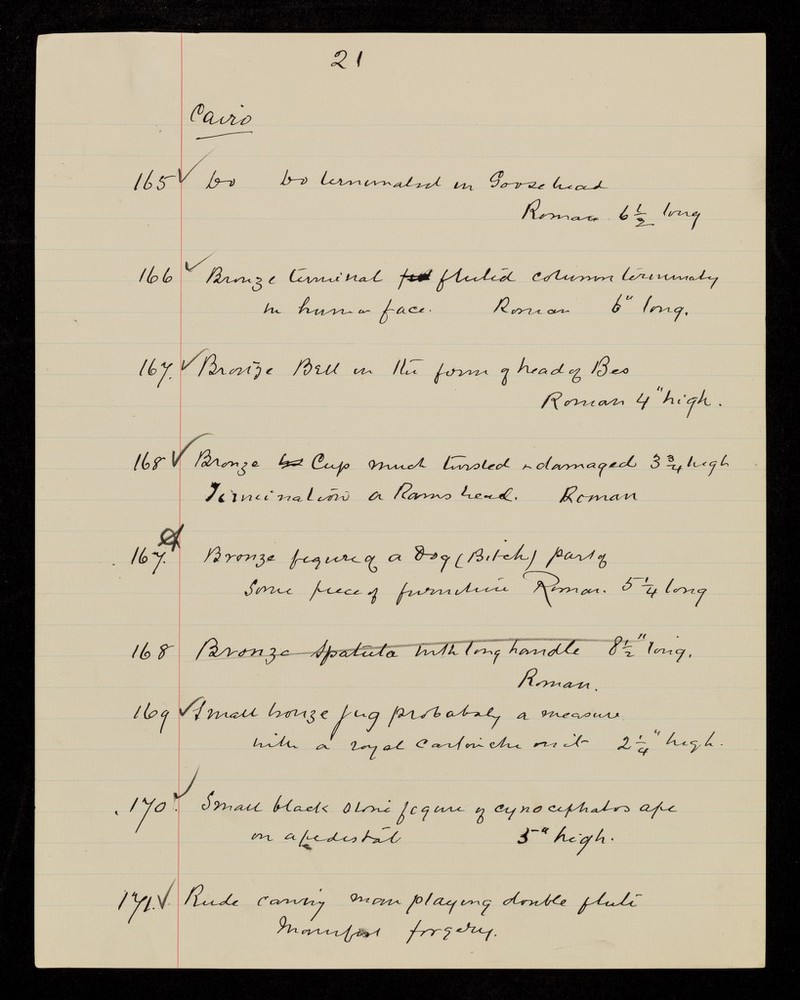 21
Cairo
165 ✓ Do Do terminated in Goosehead
Roman 6½ long
166 ✓ Bronze terminal fluted column terminating
in human face. Roman 6" long.
167. ✓ Bronze Bell in the form of head of Bes
Roman 4" high.
168 ✓ Bronze Cup much twisted & damaged 3¾ high
Termination a Rams head. Roman
167. Bronze figure of a Dog (Bitch) part of
some piece of furniture Roman. 5¼ long
168 Bronze Spatula with long handle 8½" long.
Roman.
169 ✓ Small bronze jug probably a measure
with a royal cartouche on it 2¼" high.
170. ✓ Small black stone figure of cynocephalos ape
on a pedestal 5" high.
171. ✓ Rude carving man playing double flute
Manifest forgery.